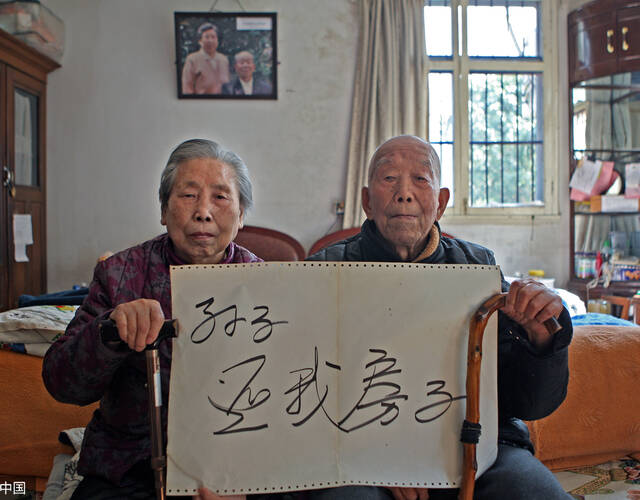 孙子
还我房子
中国